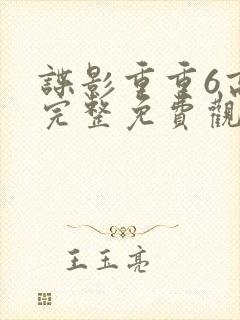 諜影重重6高
完整免費觀
王玉亮